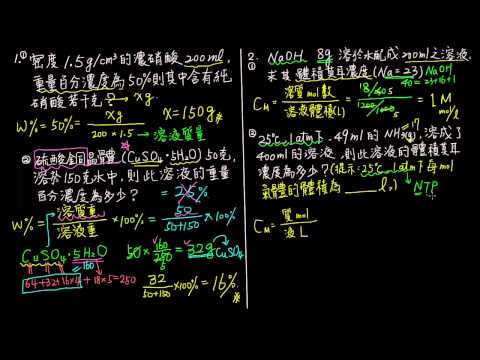 1.① 密度1.5g/cm³的濃硝酸200ml,
重量百分濃度為50%則其中含有純
硝酸若干克? → xg.
W% = 50% = xg / 200×1.5 → 溶液質量
x = 150g
② 硫酸銅晶體(CuSO₄·5H₂O) 50克,
溶於150克水中, 則此溶液的重量
百分濃度為多少? = 25%
W% = 溶質重/溶液重 ×100% = 50/50+150 ×100%
CuSO₄·5H₂O
160
64+32+16×4+18×5=250
50×160/250 = 32g CuSO₄
32/50+150 ×100% = 16%
2. NaOH 8g 溶於水配成200ml之溶液,
① 求其體積莫耳濃度(Na=23) NaOH
23+16+1
C_M = 溶質mol數/溶液體積(L) = 1M
mol/L
② 25°C 1atm下, 49ml的NH₃(g), 溶成了
400ml的溶液, 則此溶液的體積莫耳
濃度為多少?(提示:25°C 1atm下每mol
氣體的體積為 ____ l.)
NTP
C_M = 質mol/液L